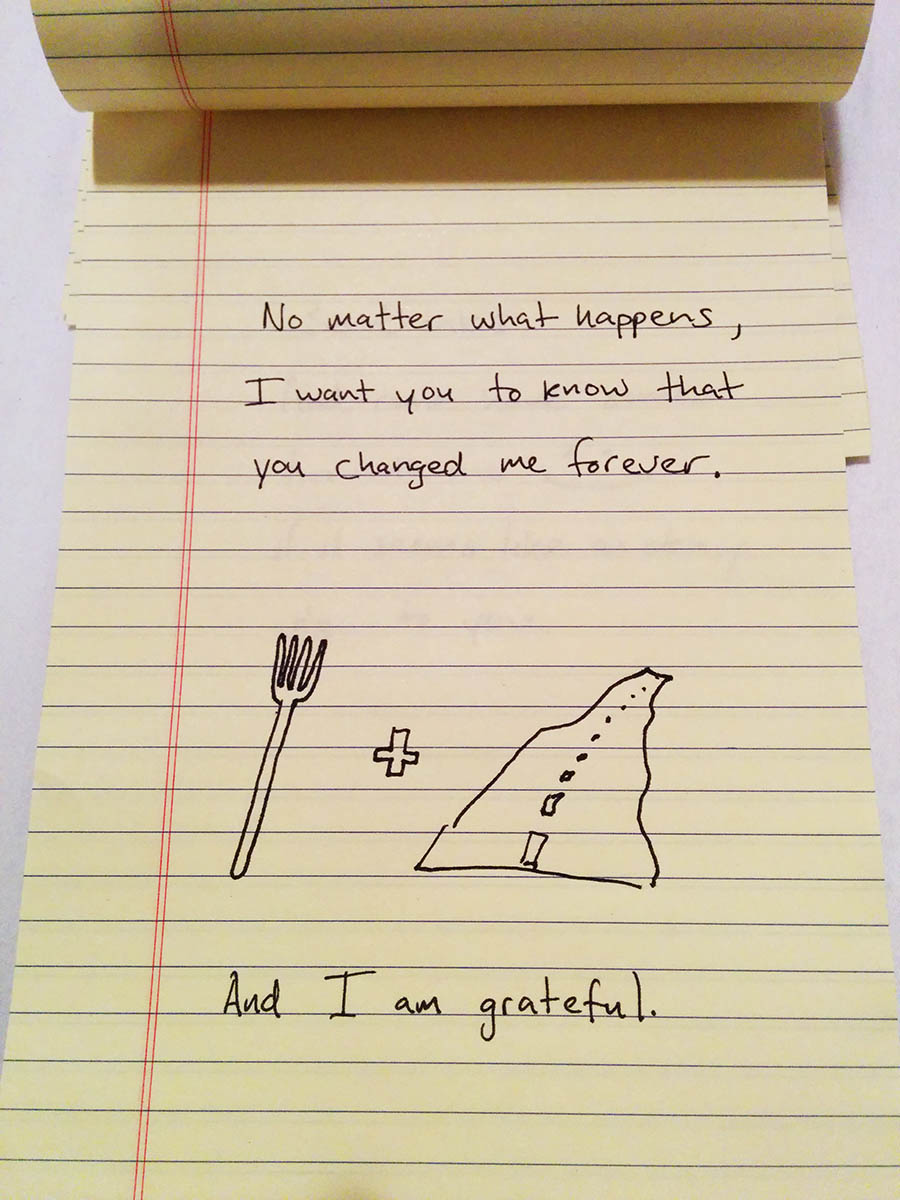 No matter what happens,
I want you to know that
you changed me forever.
And I am grateful.